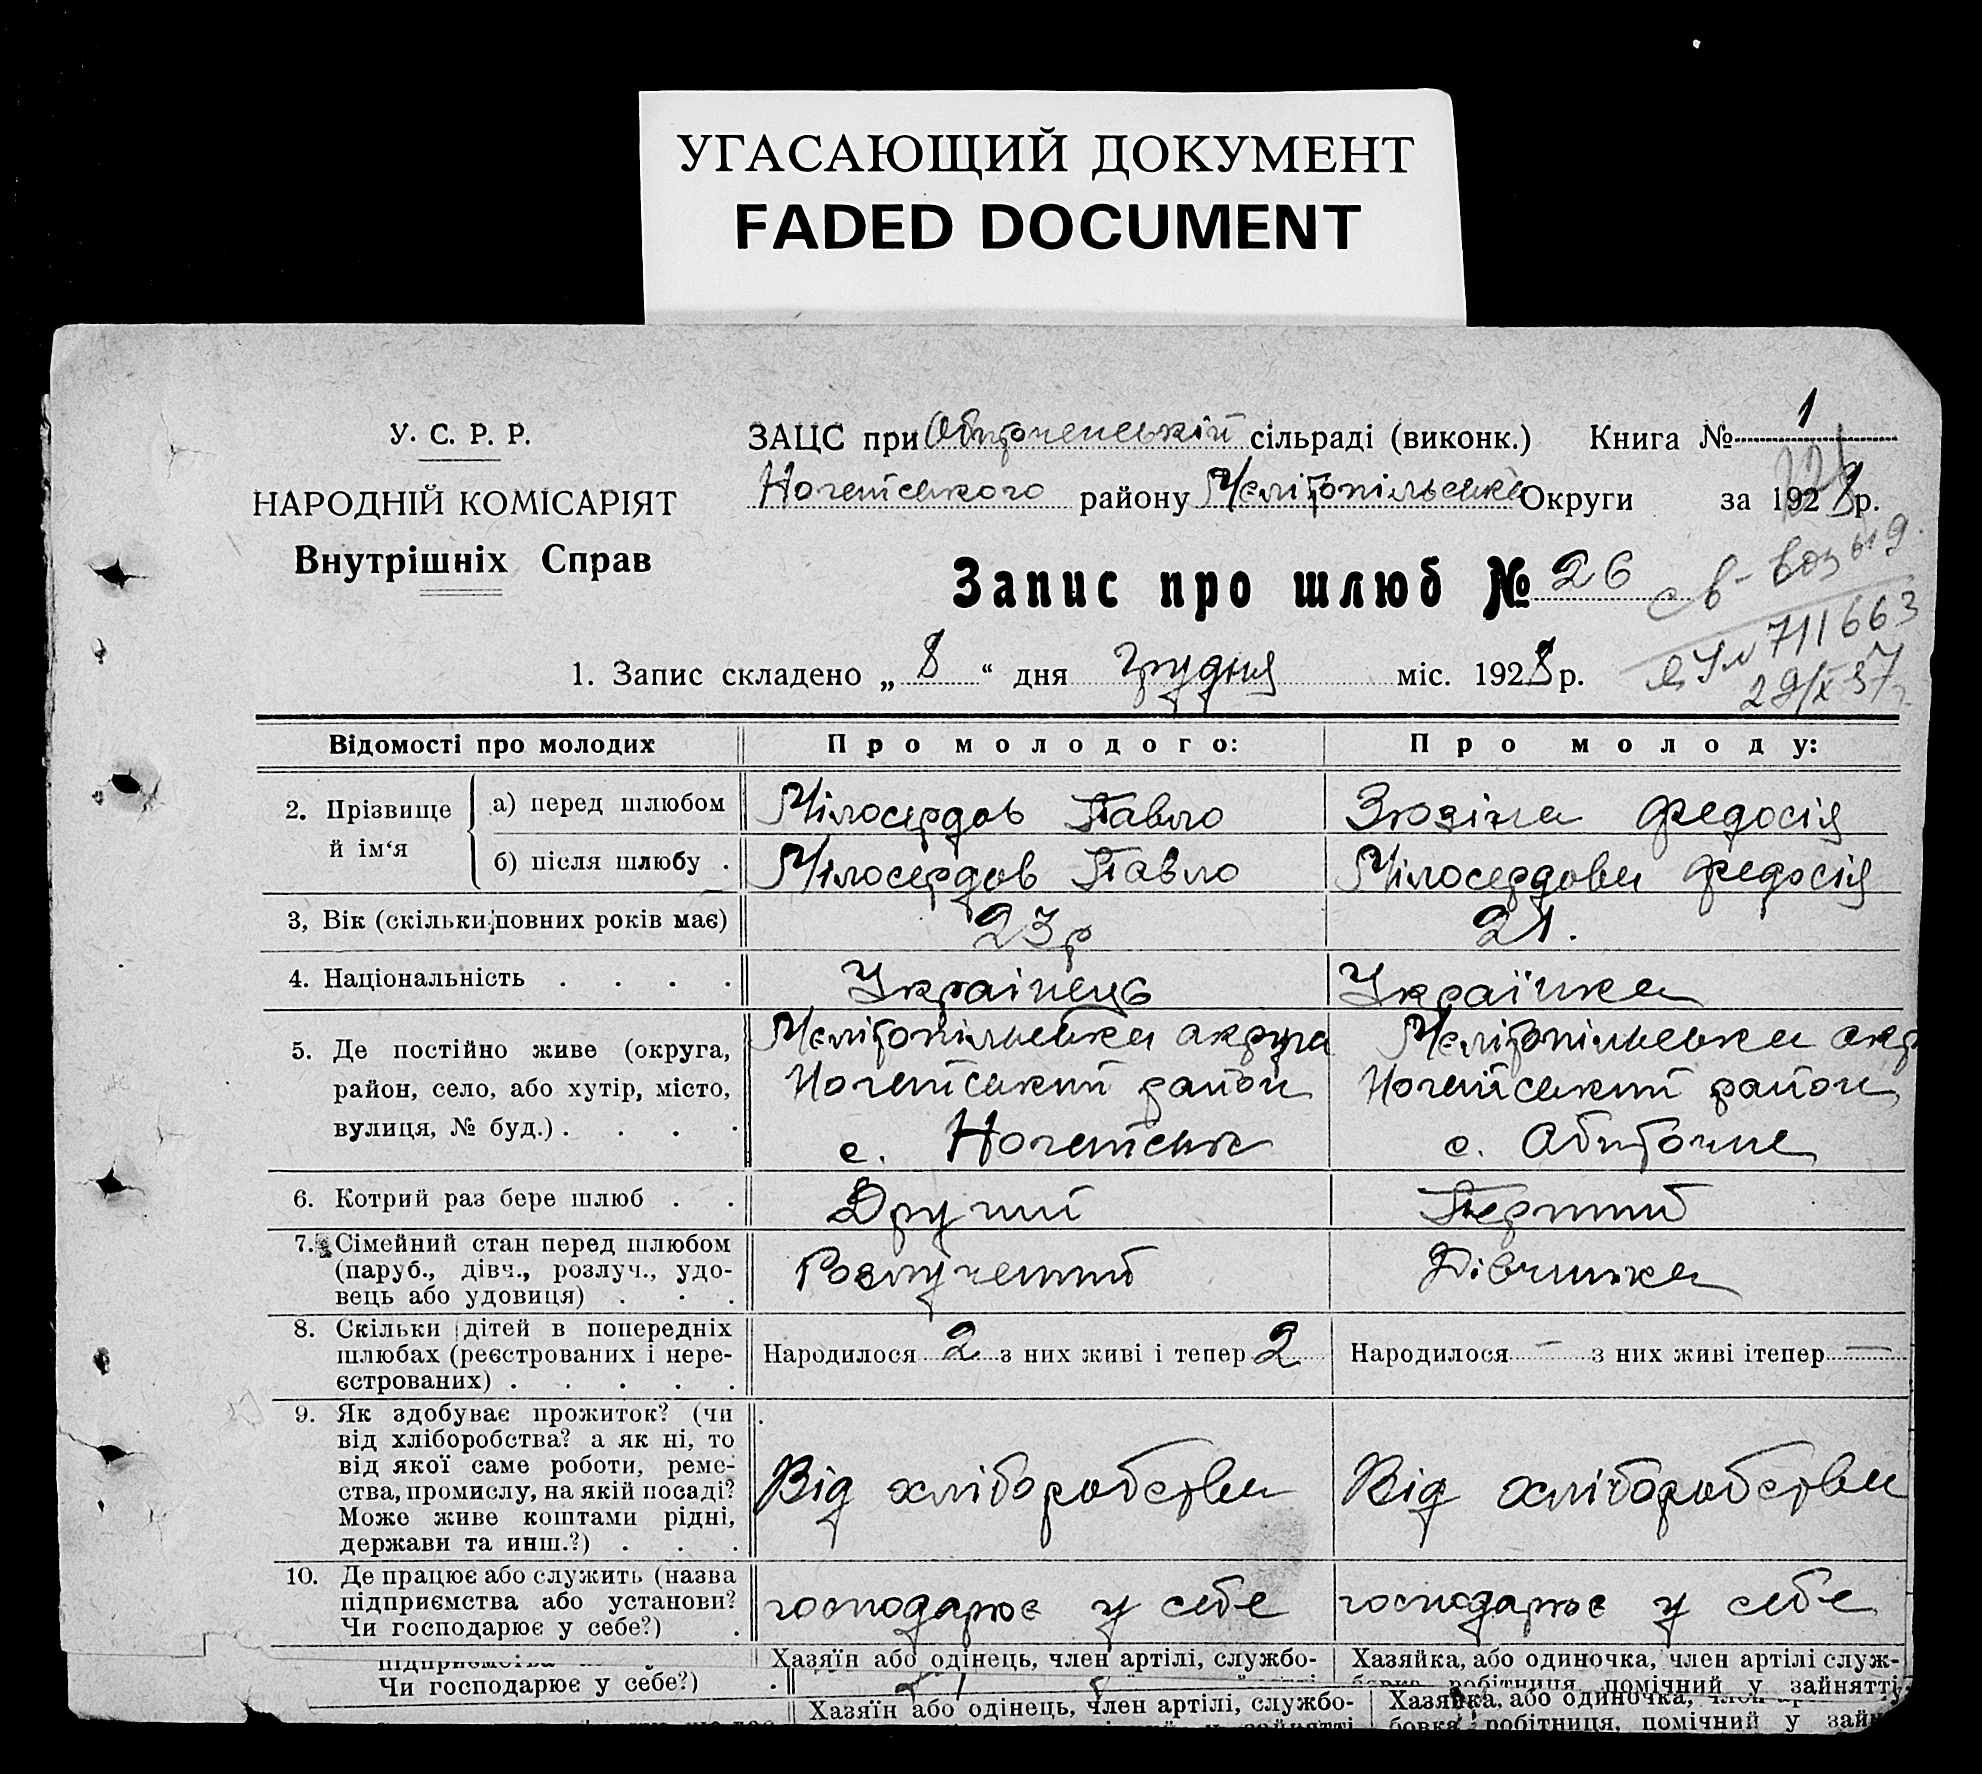 УГАСАЮЩИЙ ДОКУМЕНТ
FADED DOCUMENT
У. С. Р. Р.
НАРОДНІЙ КОМІСАРІЯТ
Внутрішніх Справ
ЗАЦС при Обиточенській сільраді (виконк.) Книга № 1
Ногайського району Мелітопільської Округи за 1928 р.
Запис про шлюб № 26
711663
29/X 57
1. Запис складено „ 8 “ дня грудня міс. 1928 р.
Відомості про молодих Про молодого: Про молоду:
2. Прізвище й ім‘я
а) перед шлюбом Мілосердов Павло Зюзіна Федосія
б) після шлюбу . Мілосердов Павло Мілосердова Федосія
3, Вік (скільки повних років має) 23 р 21.
4. Національність . . . . Українець Українка
5. Де постійно живе (округа, Мелітопільська округа Мелітопільська окр
район, село, або хутір, місто, Ногайський район Ногайський район
вулиця, № буд.) . . . . с. Ногайськ с. Обиточне
6. Котрий раз бере шлюб . . Другий Перший
7. Сімейний стан перед шлюбом
(паруб., дівч., розлуч., удо- Розлучений Дівчинка
вець або удовиця) . . .
8. Скільки дітей в попередніх
шлюбах (реєстрованих і нере- Народилося 2 з них живі і тепер 2 Народилося — з них живі ітепер —
єстрованих) . . . . .
9. Як здобуває прожиток? (чи
від хліборобства? а як ні, то
від якої саме роботи, реме-
ства, промислу, на якій посаді? Від хліборобства Від хліборобства
Може живе коштами рідні,
держави та инш.?) . . .
10. Де працює або служить (назва
підприємства або установи? господарює у себе господарює у себе
Чи господарює у себе?) .
Хазяїн або одінець, член артілі, службо- Хазяйка, або одиночка, член артілі служ-
бовка робітниця помічний у зайнятті
Чи господарює у себе?) .
Хазяїн або одінець, член артілі, службо- Хазяйка, або одиночка,
бовка, робітниця, помічний у зайн